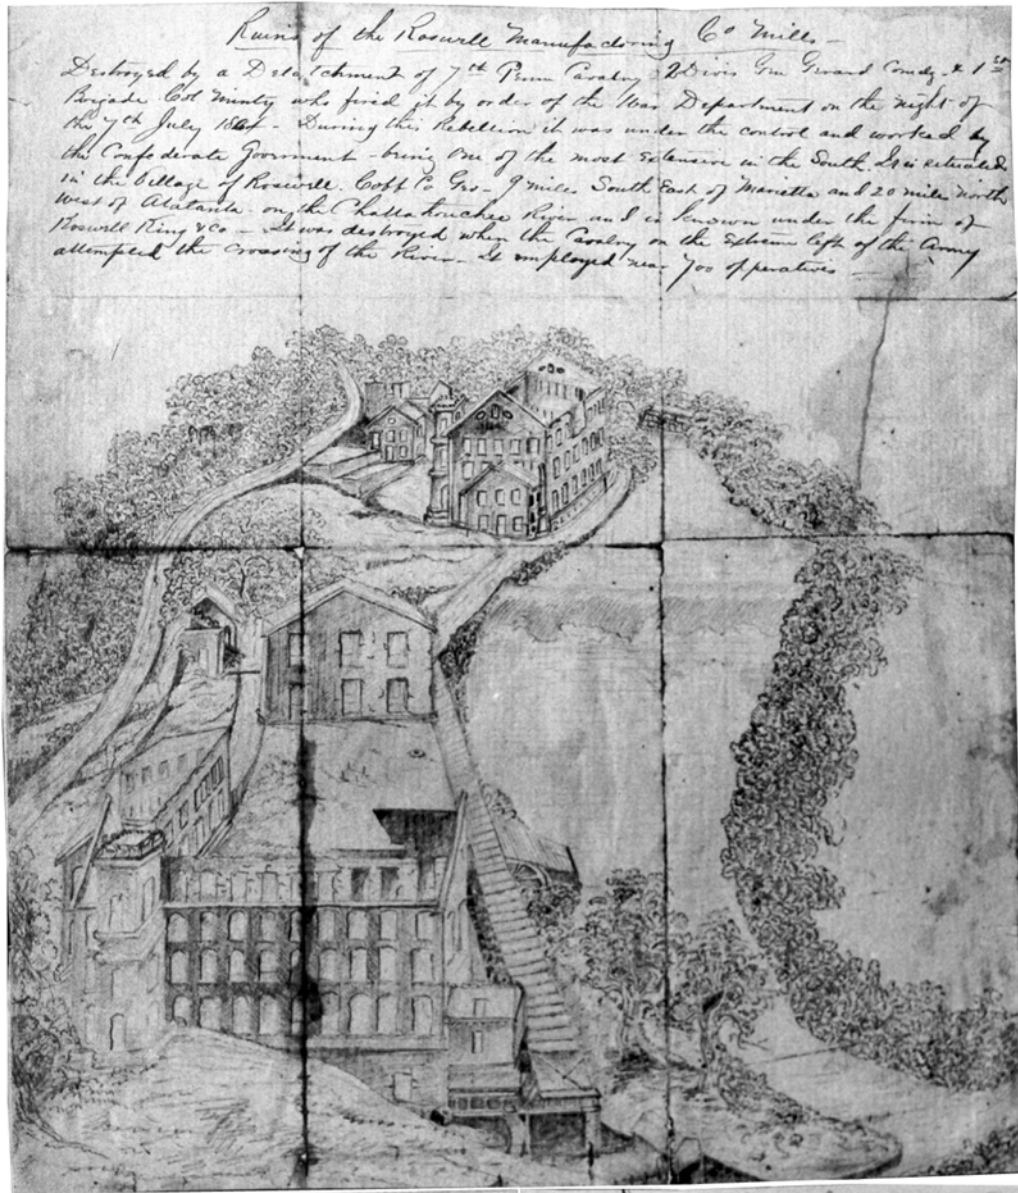 Ruins of the Roswell Manufactoring Co Mills -
Destroyed by a Detatchment of 7th Penn Cavalry 2 Divis Gen Gerard Comdg. & 1st
Brigade Col Minty who fired it by order of the War Department on the night of
the 7th July 1864 - During this Rebellion it was under the control and worked by
the Confederate Goverment - being one of the most extensive in the South. It is situated
in the Village of Roswell. Cobb Co Geo - 9 miles South East of Marietta and 20 miles North
West of Atalanta - on the Chattahouchee River and is known under the firm of
Roswell King & Co - It was destroyed when the Cavalry on the extreme left of the Army
attempted the crossing of the River - It employed near 700 opperatives